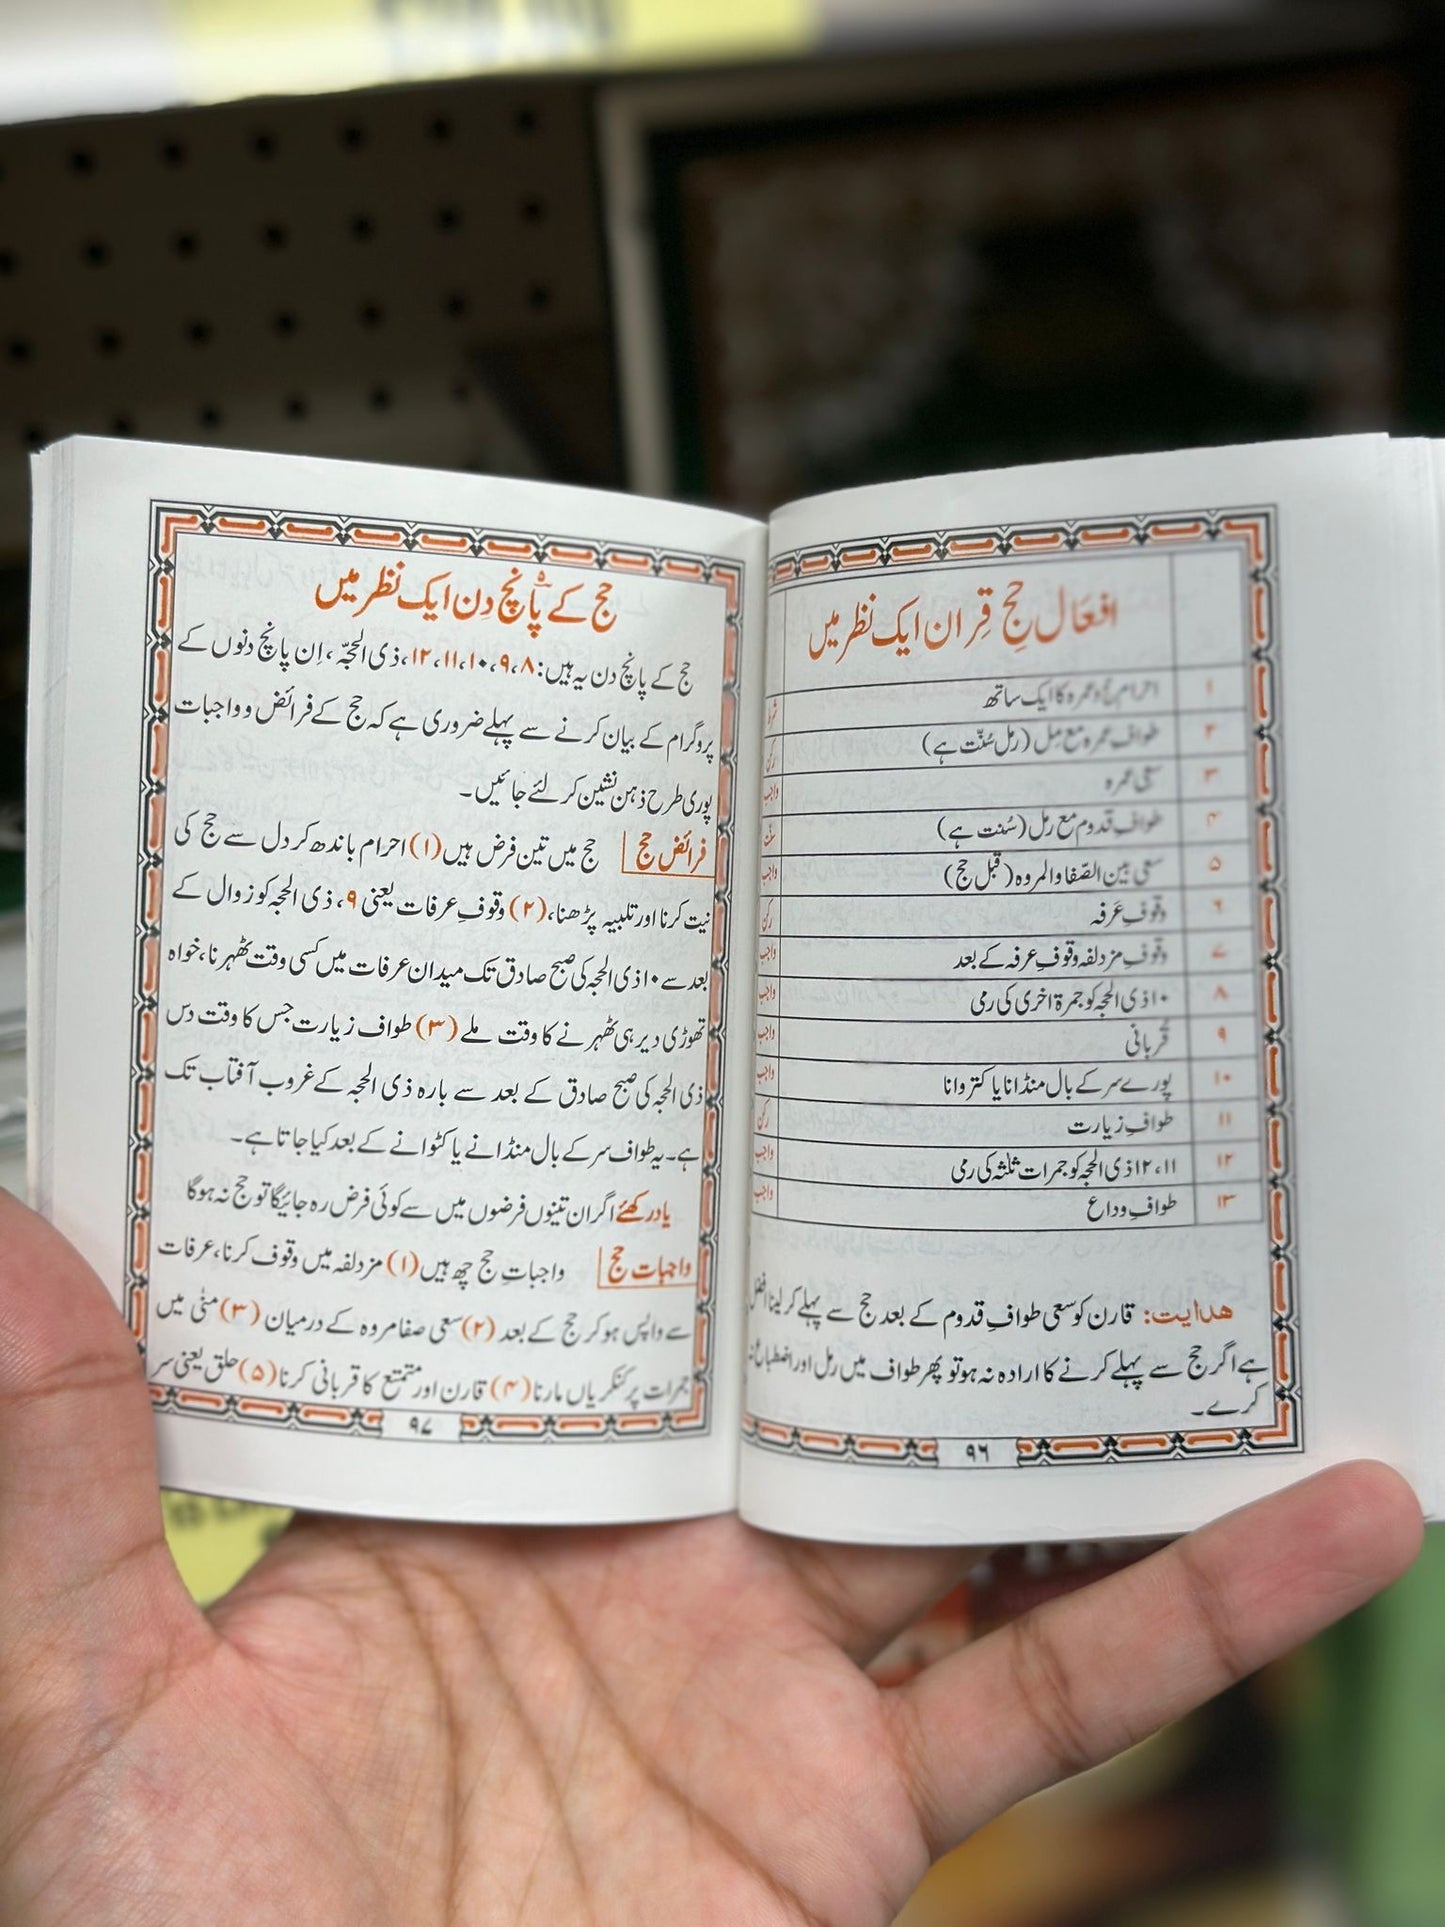 افعال حجِ قِران ایک نظر میں
۱ احرام حج و عمرہ کا ایک ساتھ شرط
۲ طواف عمرہ مع رمل (رمل سُنّت ہے) رکن
۳ سعی عمرہ واجب
۴ طوافِ قدوم مع رمل (سُنت ہے) سنّت
۵ سعی بین الصّفا والمروہ (قبل حج) واجب
۶ وقوفِ عَرفہ رکن
۷ وقوفِ مزدلفہ وقوفِ عرفہ کے بعد واجب
۸ ۱۰ ذی الحجہ کو جمرۃ اخریٰ کی رمی واجب
۹ قربانی واجب
۱۰ پورے سر کے بال منڈانا یا کتروانا واجب
۱۱ طوافِ زیارت رکن
۱۲ ۱۱، ۱۲ ذی الحجہ کو جمرات ثلثہ کی رمی واجب
۱۳ طوافِ وداع واجب
ھدایت: قارن کو سعی طوافِ قدوم کے بعد حج سے پہلے کر لینا افضل
ہے اگر حج سے پہلے کرنے کا ارادہ نہ ہو تو پھر طواف میں رمل اور اضطباع نہ
کرے۔
۹۶
حج کے پانچ دِن ایک نظر میں
حج کے پانچ دن یہ ہیں: ۸، ۹، ۱۰، ۱۱، ۱۲، ذی الحجّہ، اِن پانچ دنوں کے
پروگرام کے بیان کرنے سے پہلے ضروری ہے کہ حج کے فرائض و واجبات
پوری طرح ذہن نشین کر لئے جائیں۔
فرائض حج حج میں تین فرض ہیں (۱) احرام باندھ کر دل سے حج کی
نیت کرنا اور تلبیہ پڑھنا، (۲) وقوفِ عرفات یعنی ۹، ذی الحجہ کو زوال کے
بعد سے ۱۰ ذی الحجہ کی صبح صادق تک میدان عرفات میں کسی وقت ٹھہرنا، خواہ
تھوڑی دیر ہی ٹھہرنے کا وقت ملے (۳) طواف زیارت جس کا وقت دس
ذی الحجہ کی صبح صادق کے بعد سے بارہ ذی الحجہ کے غروب آفتاب تک
ہے۔ یہ طواف سر کے بال منڈانے یا کٹوانے کے بعد کیا جاتا ہے۔
یاد رکھئے اگر ان تینوں فرضوں میں سے کوئی فرض رہ جائیگا تو حج نہ ہوگا
واجبات حج واجباتِ حج چھ ہیں (۱) مزدلفہ میں وقوف کرنا، عرفات
سے واپس ہو کر حج کے بعد (۲) سعی صفا مروہ کے درمیان (۳) منٰی میں
جمرات پر کنکریاں مارنا (۴) قارن اور متمتع کا قربانی کرنا (۵) حلق یعنی سر
۹۷